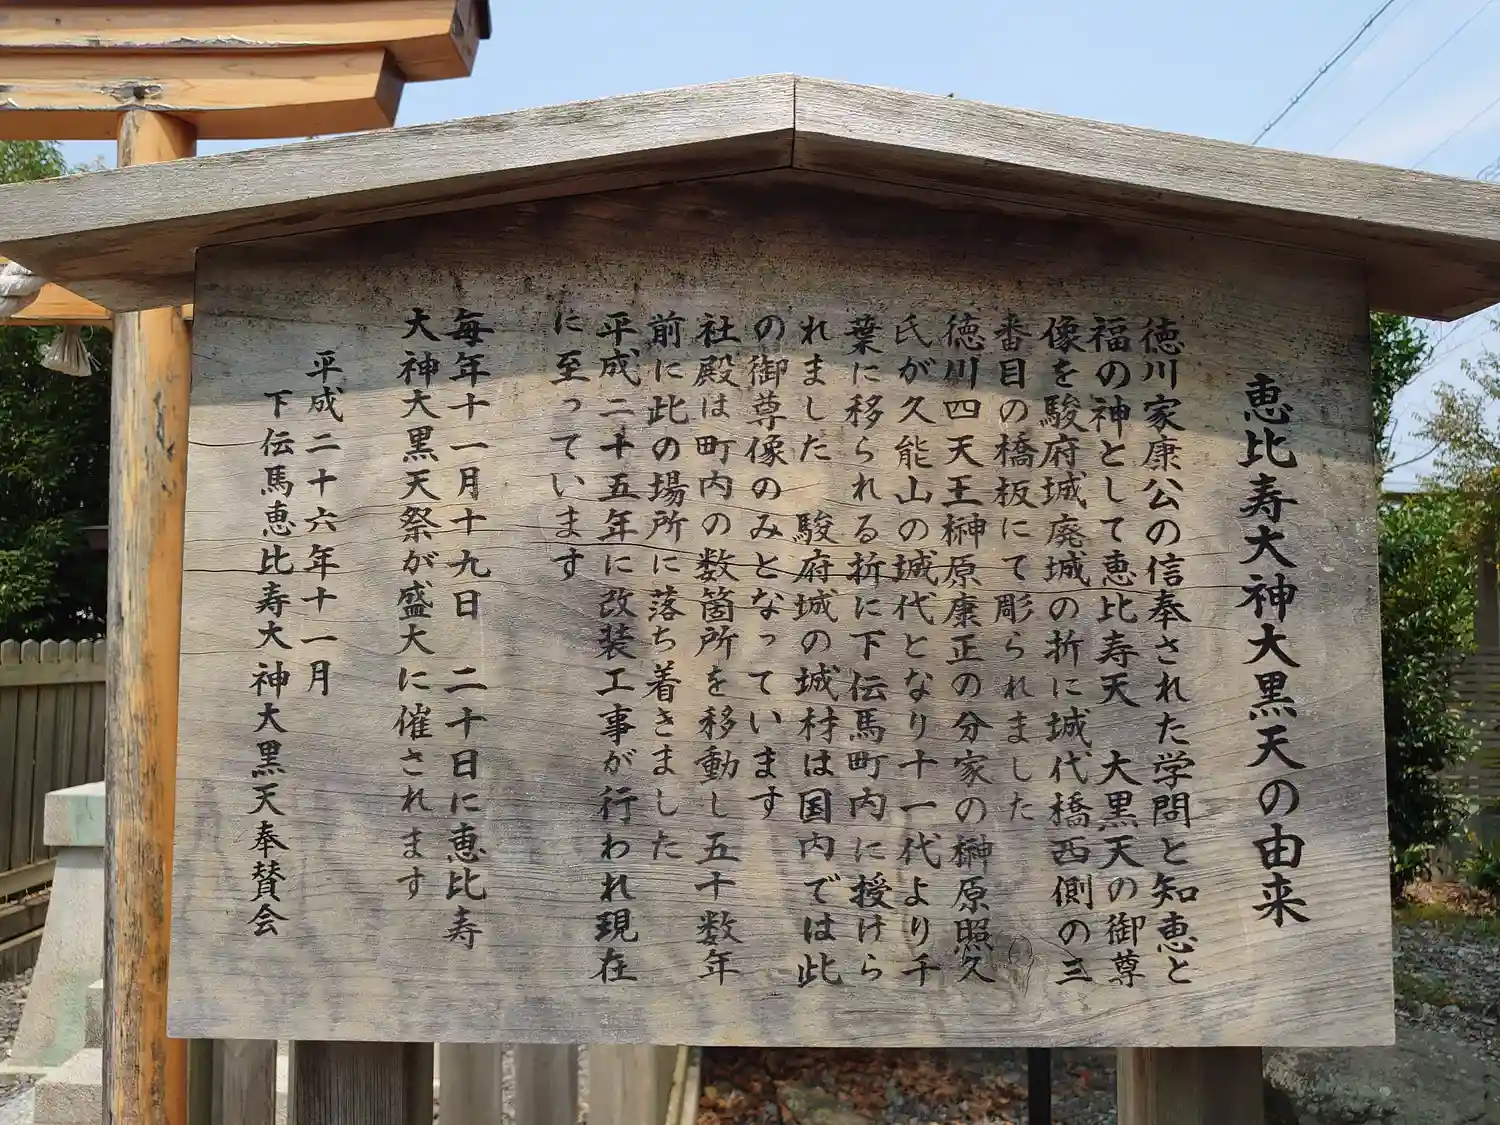 恵比寿大神大黒天の由来
徳川家康公の信奉された学問と知恵と
福の神として恵比寿天 大黒天の御尊
像を駿府城廃城の折に城代橋西側の三
番目の橋板にて彫られました
徳川四天王榊原康正の分家の榊原照久
氏が久能山の城代となり十一代より千
葉に移られる折に下伝馬町内に授けら
れました 駿府城の城材は国内では此
の御尊像のみとなっています
社殿は町内の数箇所を移動し五十数年
前に此の場所に落ち着きました
平成二十五年に改装工事が行われ現在
に至っています
毎年十一月十九日 二十日に恵比寿
大神大黒天祭が盛大に催されます
平成二十六年十一月
下伝馬恵比寿大神大黒天奉賛会